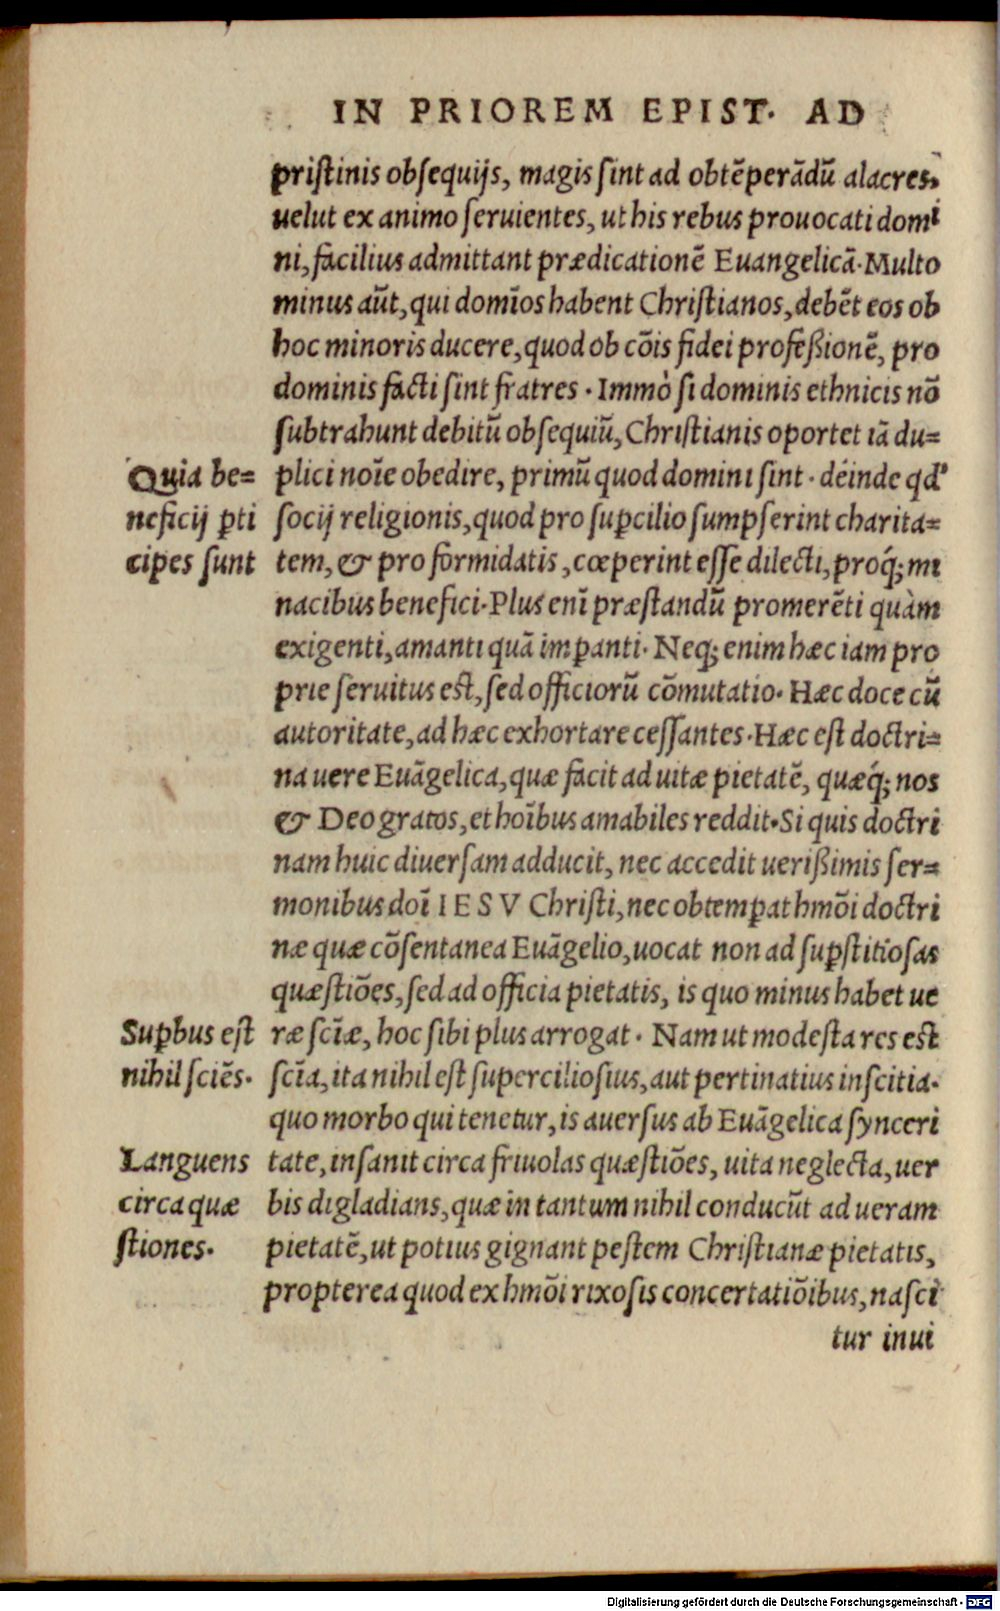 IN PRIOREM EPIST. AD
pristinis obsequijs, magis sint ad obtēperādū alacres,
uelut ex animo seruientes, ut his rebus prouocati domi
ni, facilius admittant prædicationē Euangelicā. Multo
minus aūt, qui domīos habent Christianos, debēt eos ob
hoc minoris ducere, quod ob cōis fidei profeßionē, pro
dominis facti sint fratres. Immò si dominis ethnicis nō
subtrahunt debitū obsequiū, Christianis oportet iā du=
Quia be=
neficij ꝑti
cipes sunt
plici noīe obedire, primū quod domini sint. deinde qd'
socij religionis, quod pro suꝑcilio sumpserint charita=
tem, & pro formidatis, cœperint esse dilecti, proq́; mi
nacibus benefici. Plus enī præstandū promerēti quàm
exigenti, amanti quā imꝑanti. Neq; enim hæc iam pro
prie seruitus est, sed officiorū cōmutatio. Hæc doce cū
autoritate, ad hæc exhortare cessantes. Hæc est doctri=
na uere Euāgelica, quæ facit ad uitæ pietatē, quæq́; nos
& Deo gratos, et hoībus amabiles reddit. Si quis doctri
nam huic diuersam adducit, nec accedit uerißimis ser=
monibus doī IESV Christi, nec obtemꝑat hmōi doctri
næ quæ cōsentanea Euāgelio, uocat non ad suꝑstitiosas
quæstiōes, sed ad officia pietatis, is quo minus habet ue
Suꝑbus est
nihil sciēs.
ræ scīæ, hoc sibi plus arrogat. Nam ut modesta res est
scīa, ita nihil est superciliosius, aut pertinatius inscitia.
quo morbo qui tenetur, is auersus ab Euāgelica synceri
Languens
circa quæ
stiones.
tate, insanit circa friuolas quæstiōes, uita neglecta, uer
bis digladians, quæ in tantum nihil conducūt ad ueram
pietatē, ut potius gignant pestem Christianæ pietatis,
propterea quod ex hmōi rixosis concertatiōibus, nasci
tur inui
Digitalisierung gefördert durch die Deutsche Forschungsgemeinschaft - DFG